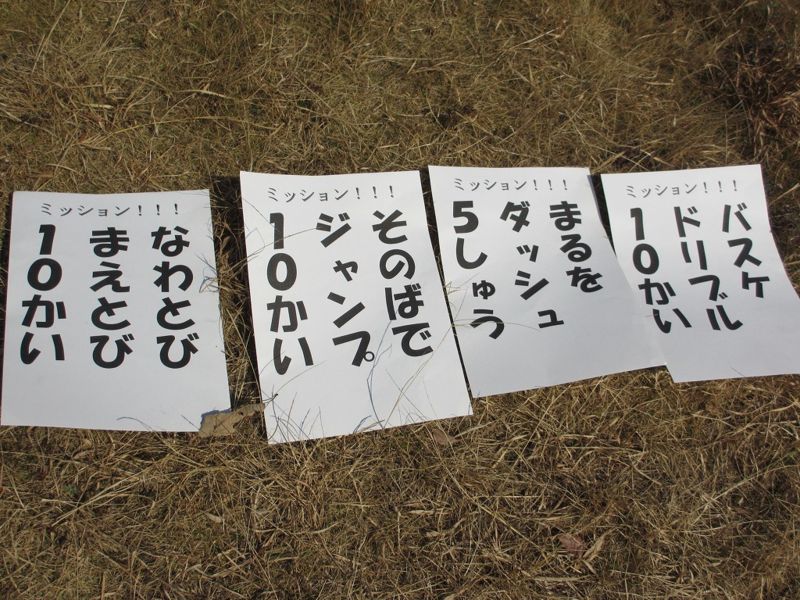 ミッション！！！
なわとび
まえとび
10かい
ミッション！！！
そのばで
ジャンプ
10かい
ミッション！！！
まるを
ダッシュ
5しゅう
ミッション！！！
バスケ
ドリブル
10かい